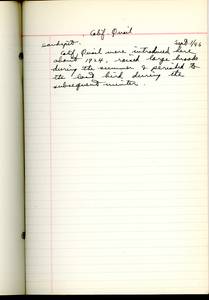 Calif. Quail
Sandspit. Sept 1/46
Calif. Quail were introduced here
about 1924, raised large broods
during the summer & perished to
the last bird during the
subsequent winter.